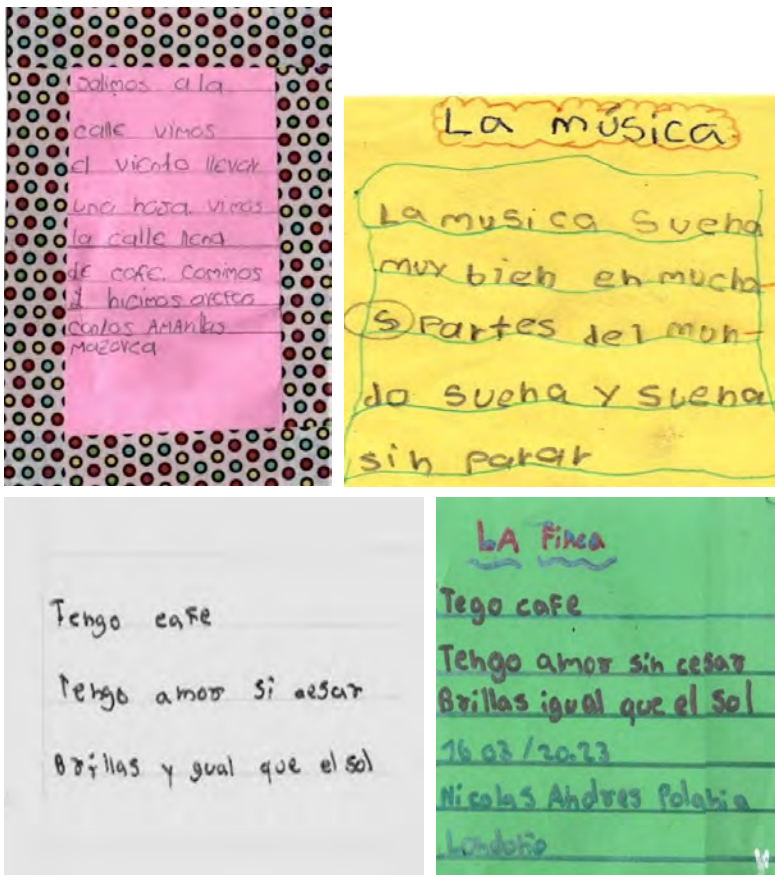 salimos a la
calle vimos
el viento llevar
una hoja. vimos
la calle llena
de cafe. comimos
hicimos
AMArillas
Mazorca
La música
La musica suena
muy bien en mucha
s Partes del mun-
do suena y suena
sin parar
Tengo cafe
Tengo amor si cesar
Brillas y gual que el sol
LA Finca
Tego cafe
Tengo amor sin cesar
Brillas igual que el Sol
16 03/2023
Nicolas Andres Polania
Londoño